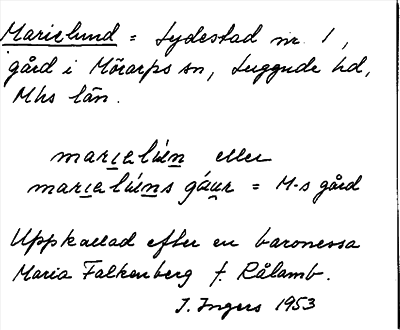 Marielund = Lydestad nr. 1,
gård i Mörarps sn, Luggude hd,
Mhs län.
marielúnn eller
marielúnns gáur = M-s gård
Uppkallad efter en baronessa
Maria Falkenberg f. Rålamb.
I. Ingers 1953